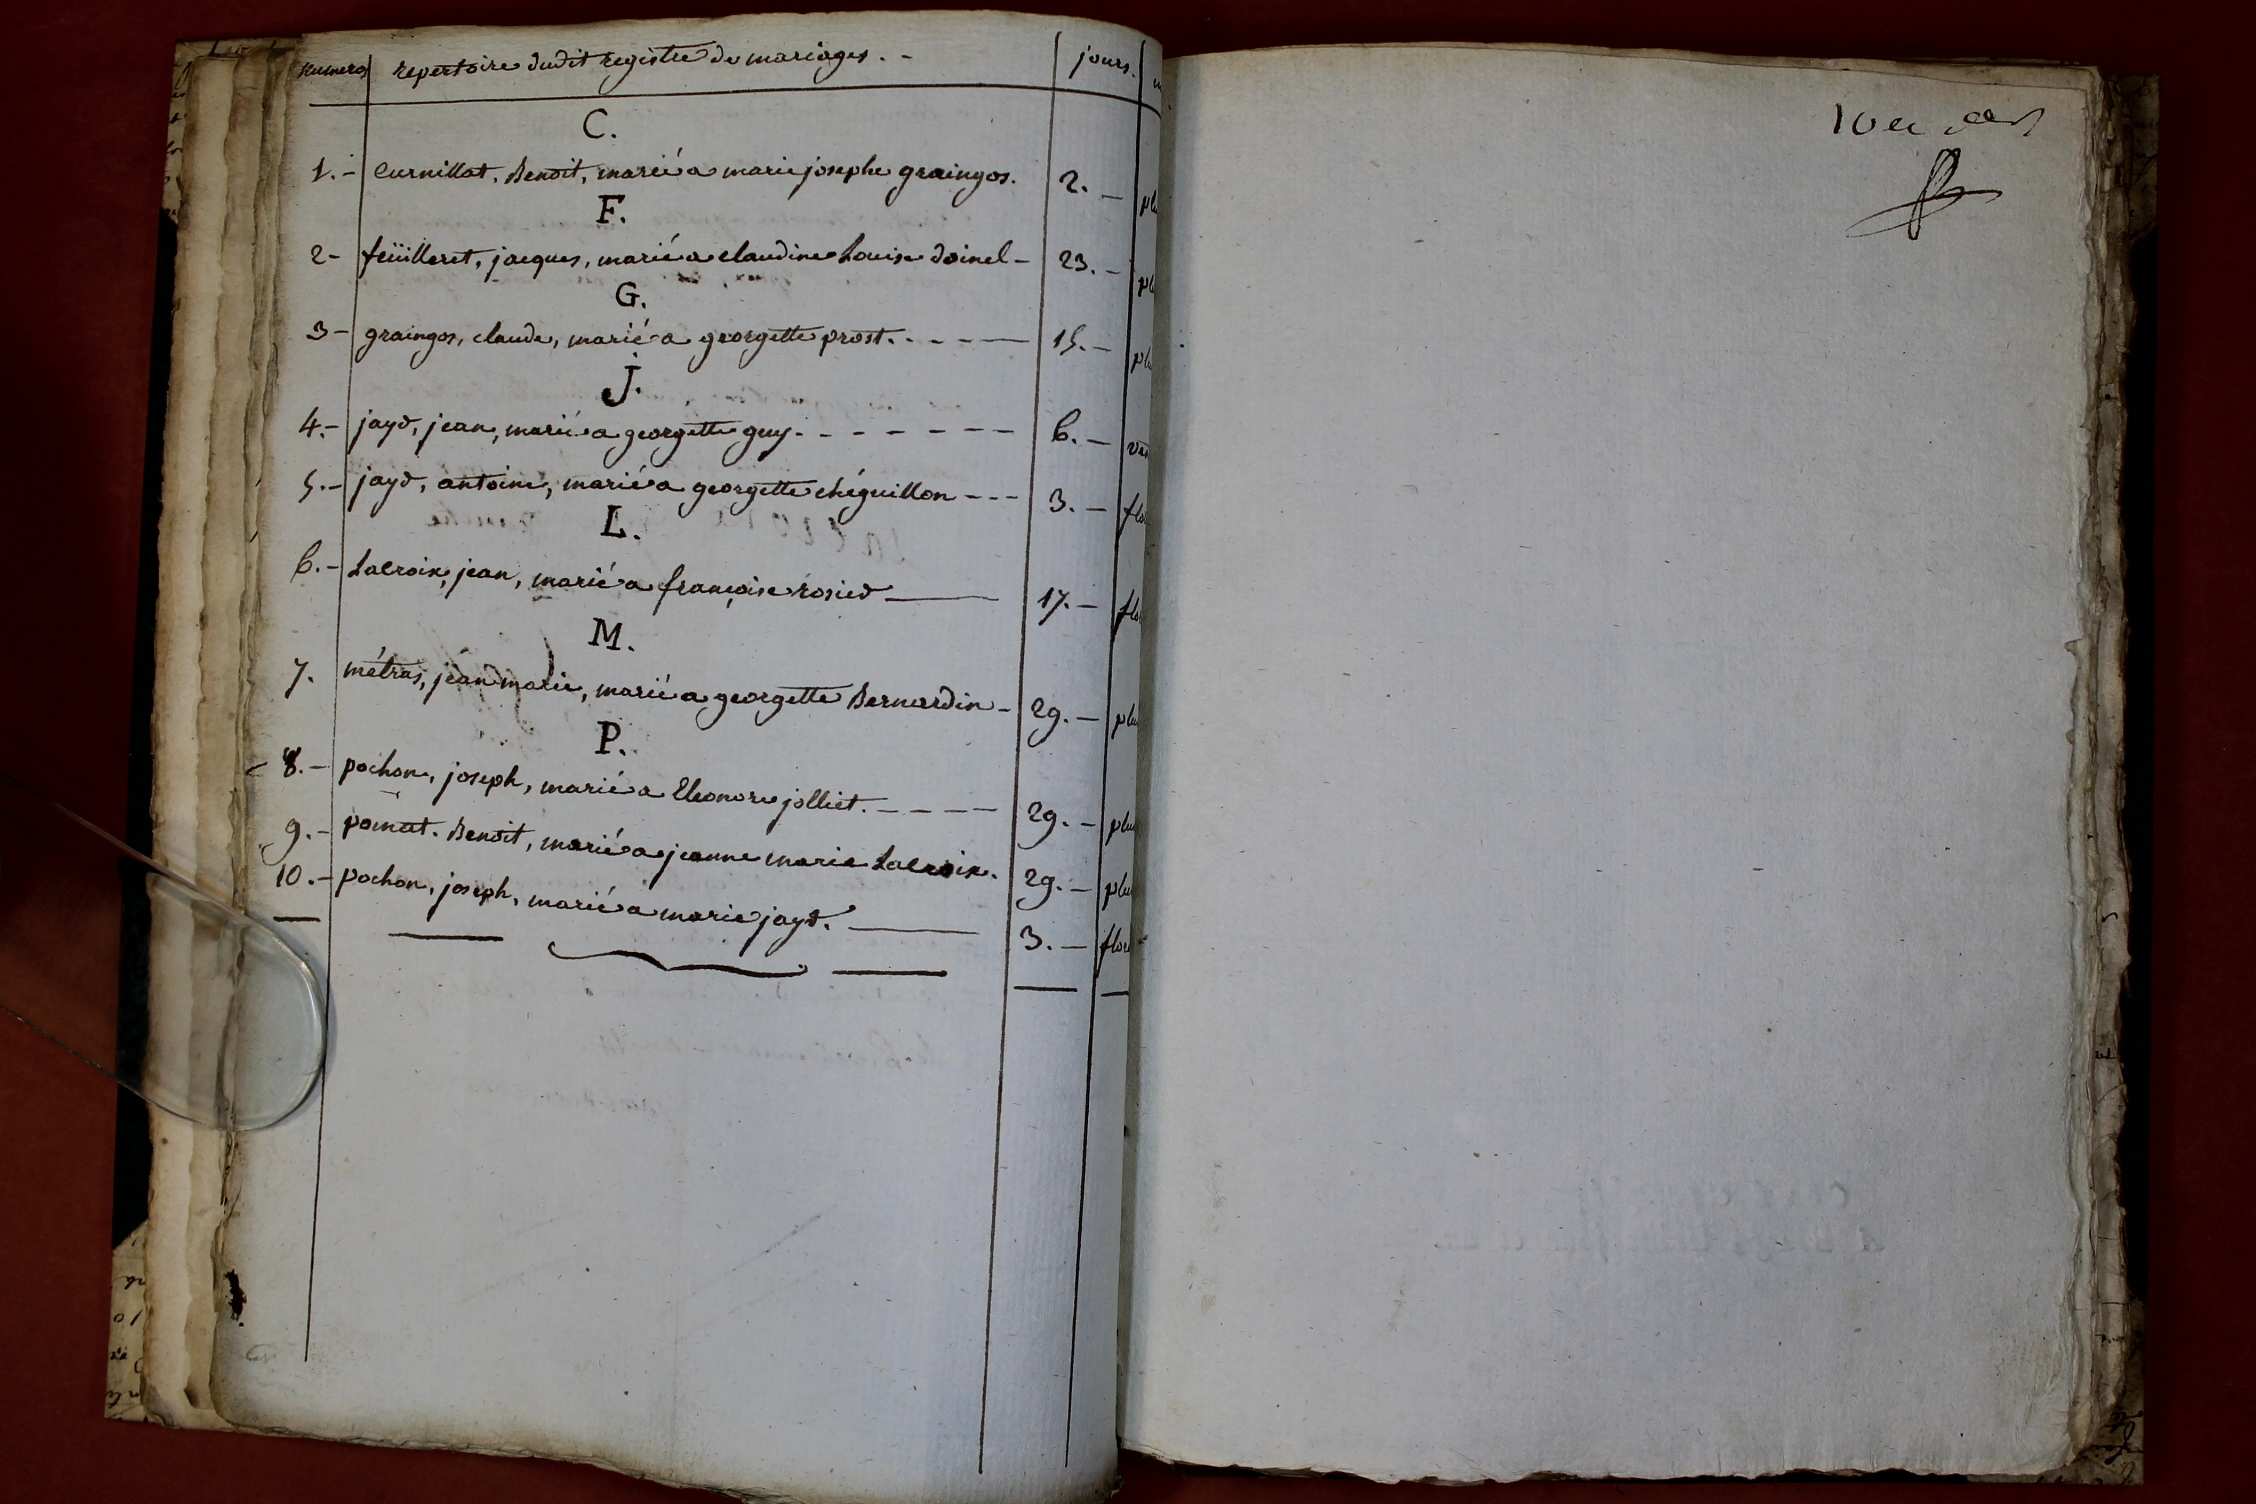 Numeros repertoire dudit registre de mariages. - jours.
C.
1. - Curnillat, Benoit, marié a marie josephe graingos. 2. - plu
F.
2 - feüilleret, jacques, marié a claudine Louise doinel - 23. - plu
G.
3 - graingos, claude, marié a georgette prost. - - - - 15. - plu
j.
4. - jayd, jean, marié a georgette guy. - - - - - - - 6. -
5. - jayd, antoine, marié a georgette chéguillon - - - 3. - flo
L.
6. - Lacroix, jean, marié a françoise rosied 17. - flo
M.
7. métras, jean marie, marié a georgette Bernardin - 29. - plu
P.
8. - pochon, joseph, marié a Eleonore jolliet. - - - - 29. - plu
9. - Benoit, marié a jeanne marie Lacroix. 29. - plu
10. - pochon, joseph, marié a marie jayd. 3. - flor